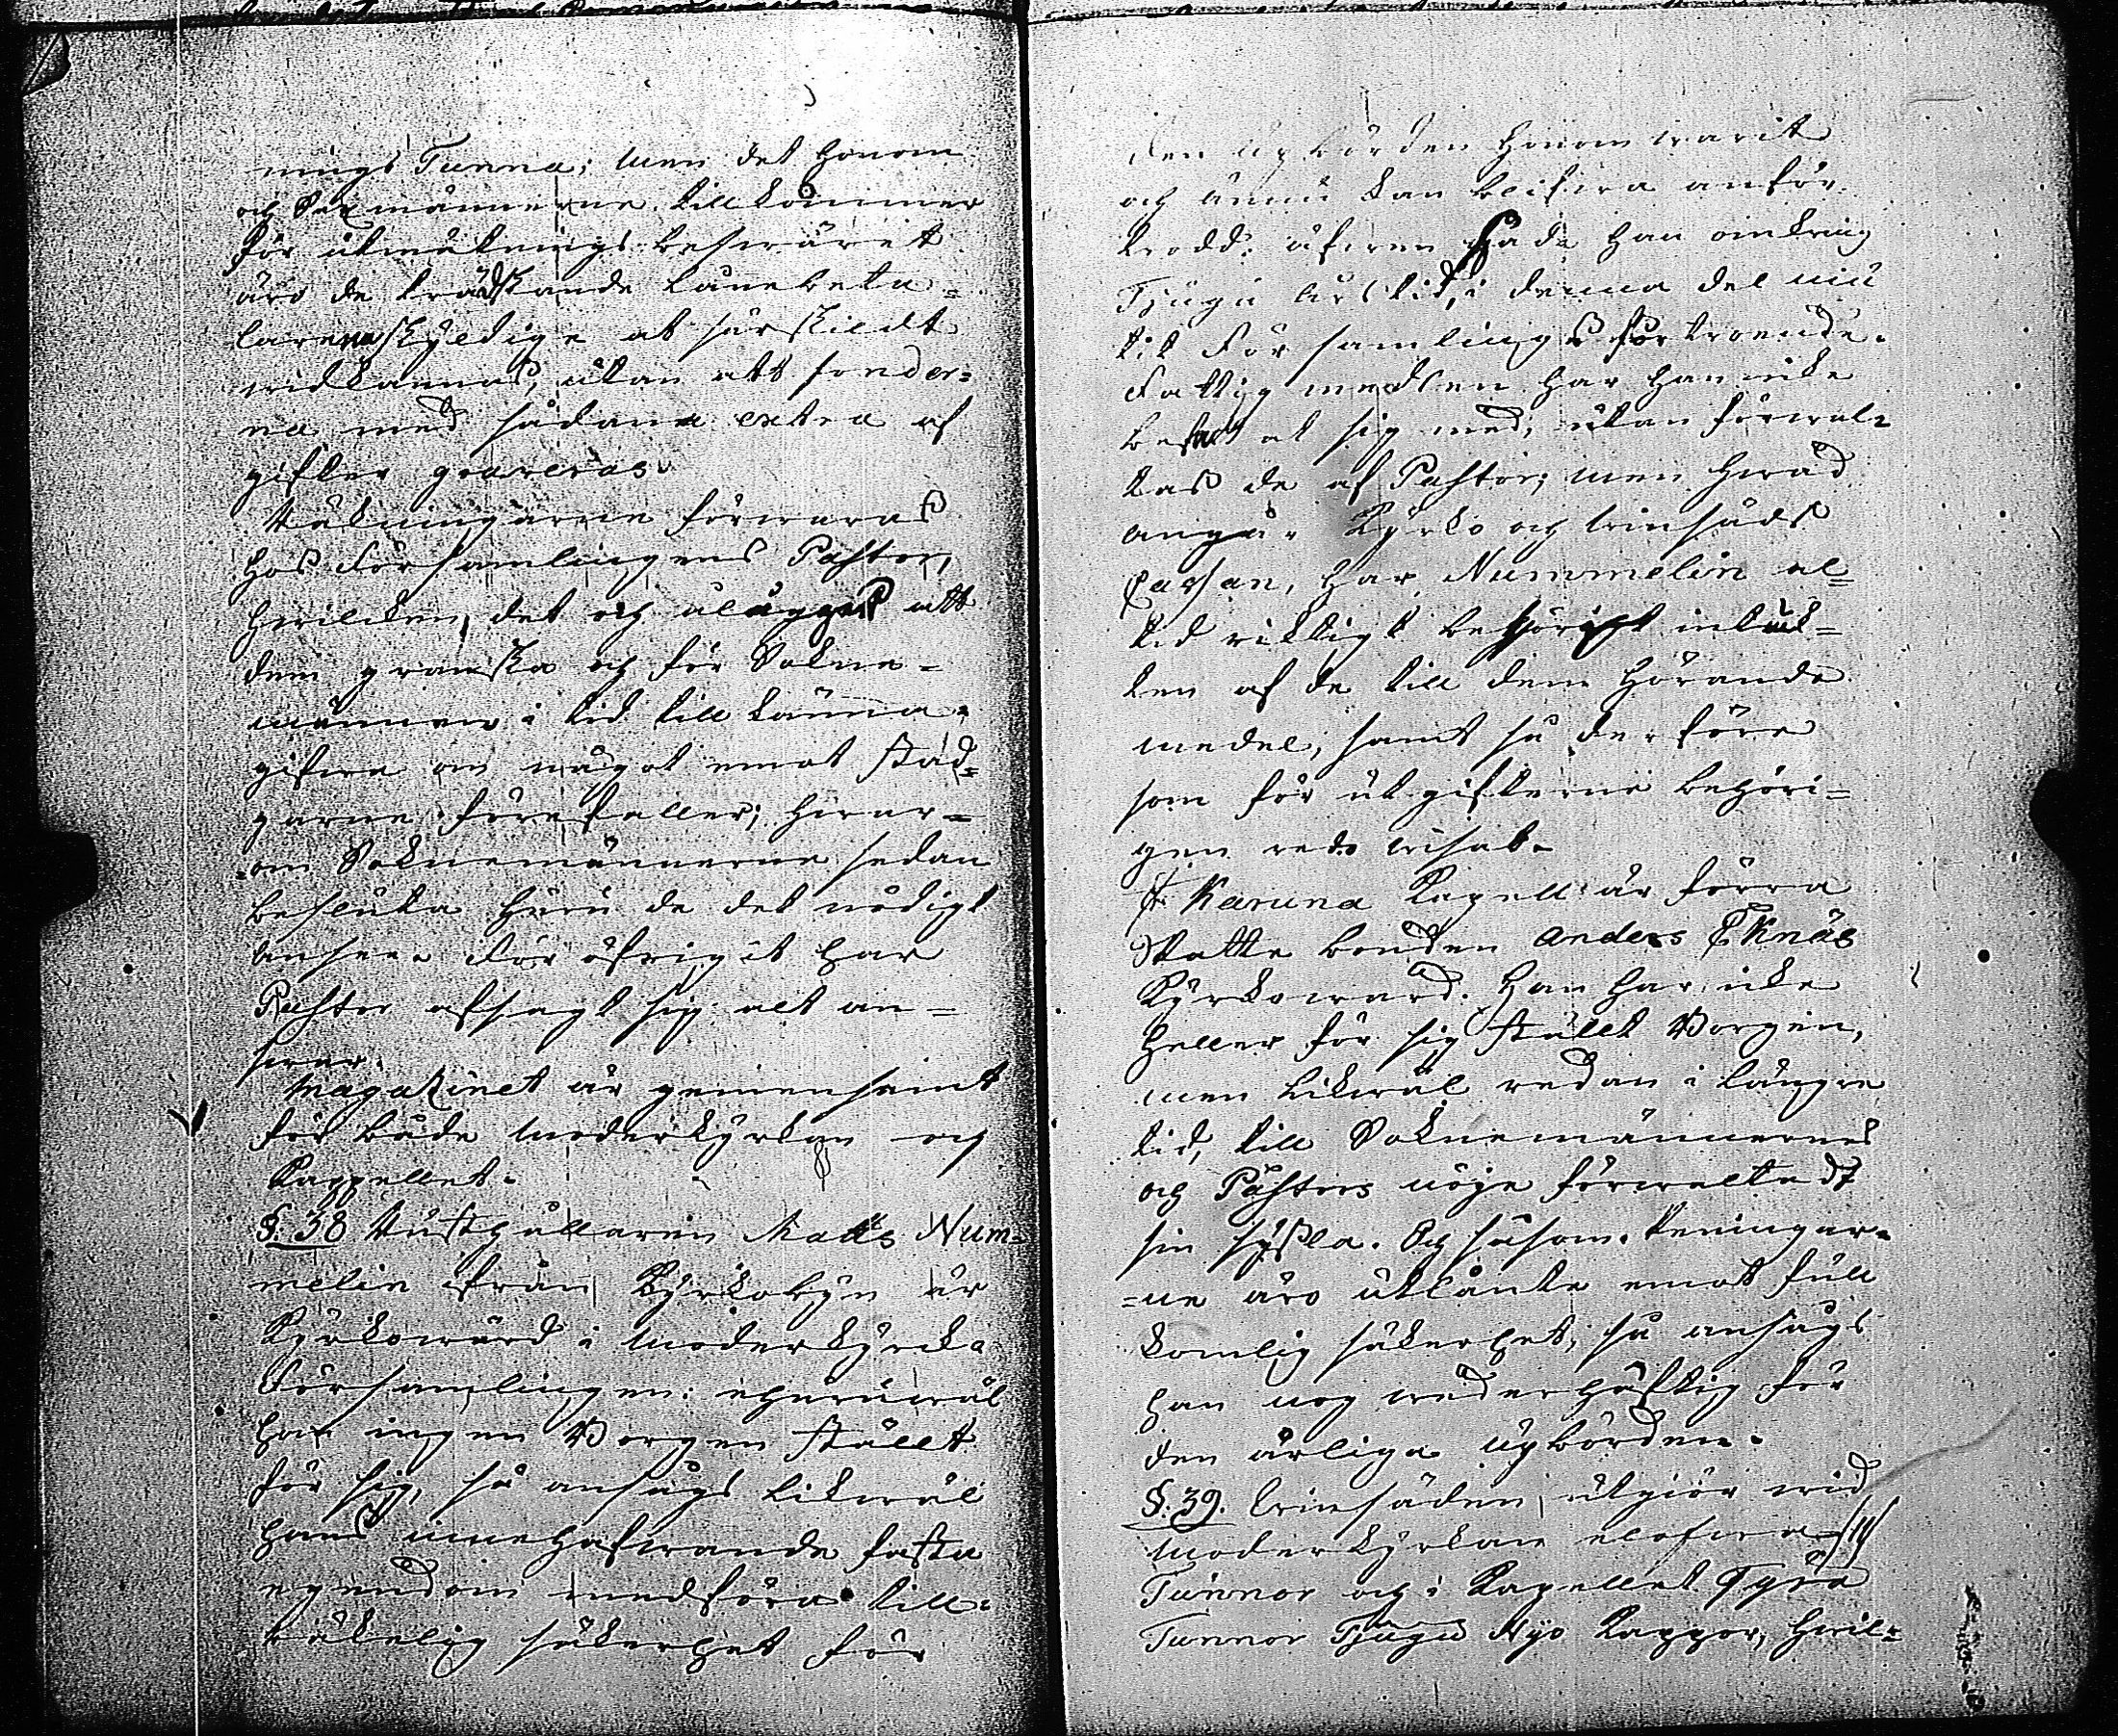 nings Tunna; men det honom
och Sexmännerne tillkommer
för utmätnings beswäret
äro de trädskande lånebeta=
larena skyldige at särskildt
widkännas, utan att fonder=
na med sådana extra af
gifter graveras.
Räkningarne förwaras
hos Församlingens Pastor,
hwilcken det och ålägges att
dem granska och för Sokne=
männen i tid till känna
gifwa om något emot stad=
garne förefaller; hwar=
=om Soknemännerne sedan
besluta huru de det nödigt
anse. För öfrigit har
Pastor afsagt sig alt an=
swar.
Magazinet är gemensamt
för både Moderkyrkan och
Kappellet.
§. 38 Rusthållaren Matts Num=
melin ifrån Kyrkobyn är
Kyrkowärd i Moderkyrko
Församlingen: ehuruwäl
han ingen Borgen stält
för sig, så ansågs likwäl
hans innehafwande fasta
egendom medföra till=
räkelig säkerhet för
den upbörden honom warit
och ännu kan blifwa anför
trodd; äfwen hade han omkring
Tjugu års tid, i denna del niu
tit Församlings förtroende.
Fattig medlen har han icke
befattat sig med, utan förwal=
tas de af Pastor; men hwad
angår Kyrko och winsäds
Cassan, har Nummelin al=
tid riktigt behörigt
ten af de till dem hörande
medel, samt så derföre
som för utgifterne behöri=
gen redo wisat.
I Karuna Kapell är förra
Skatte bonden Anders Eknäs
Kyrkowärd. Han har icke
heller för sig stält Borgen,
men likwäl redan i längre
tid, till Soknemännernes
och Pastors nöje förwaltadt
sin syssla. Och såsom Peningar=
=ne äro utlånte emot full
komlig säkerhet, så ansågs
han nog wederhäftig för
den årliga upbörden.
§. 39. Winsäden utgiör wid
Moderkyrkan elofwa /11/
Tunnor och i Kapellet Fyra
Tunnor Tjugu Nyo Kappor, hwil=